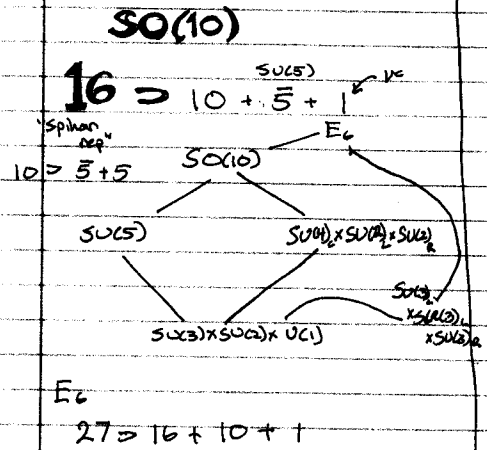 SO(10)
SU(5)
16 ⊃ 10 + 5̄ + 1 νᶜ
"Spinor
rep"
10 ⊃ 5̄ + 5
E₆
SO(10)
SU(5)
SU(4)c × SU(2)L × SU(2)R
SU(3)c
× SU(3)L
× SU(3)R
SU(3) × SU(2) × U(1)
E₆
27 ⊃ 16 + 10 + 1